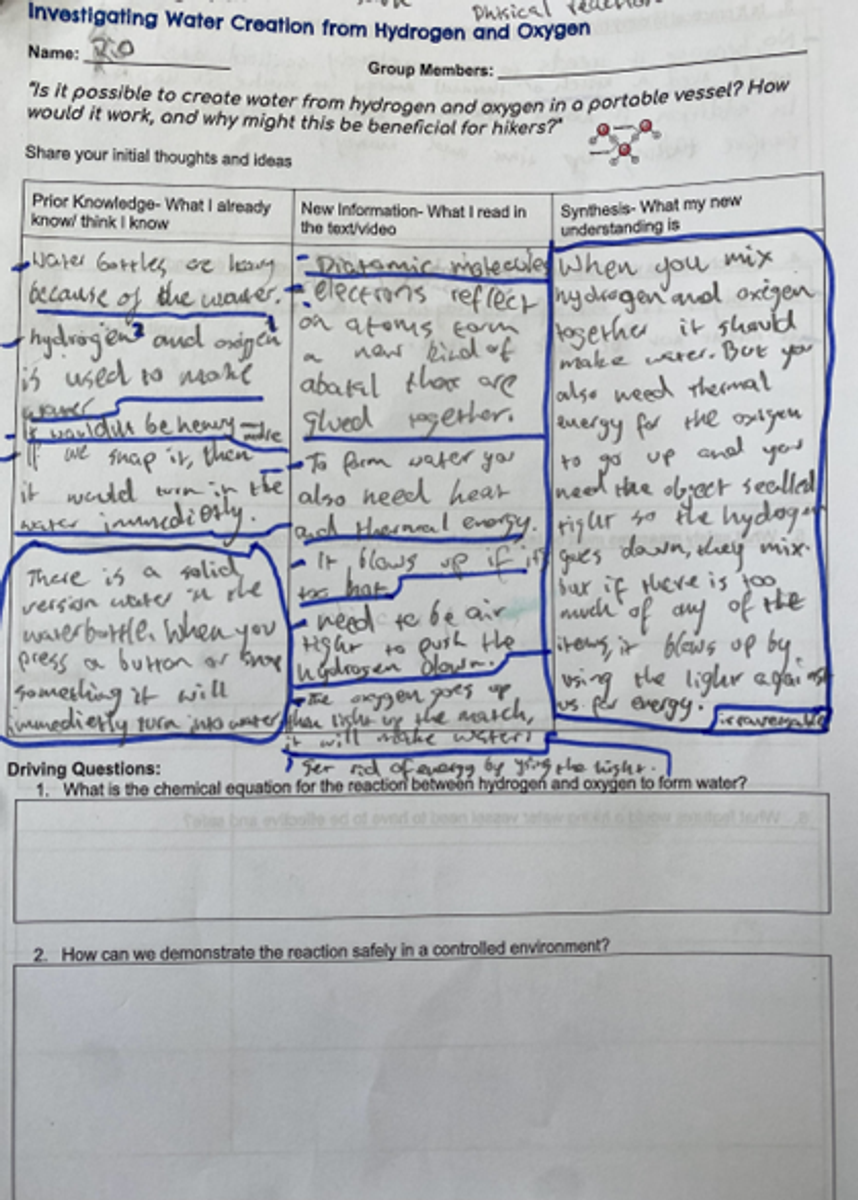 Dhisical reaction
Investigating Water Creation from Hydrogen and Oxygen
Name:
Group Members:
"Is it possible to create water from hydrogen and oxygen in a portable vessel? How
would it work, and why might this be beneficial for hikers?"
Share your initial thoughts and ideas
Prior Knowledge- What I already
know/ think I know
- Water bottles are heavy
because of the water.
- hydrogen² and oxigen¹
is used to make
water
- It wouldn't be heavy
- If we snap it, then
it would turn in the
water immediestly.
There is a solid
version water in the
waterbottle. When you
press a button or snap
something it will
immediestly turn into water
New Information- What I read in
the text/video
- Diatomic molecules
- electrons reflect
on atoms form
a new kind of
that are
glued together.
- To form water you
also need heat
and thermal energy.
- It blows up if it's
too hot
- need to be air
tight to push the
hydrogen down.
- The oxygen goes up
then light up the match,
it will make water!
rid of energy by the light.
Synthesis- What my new
understanding is
When you mix
hydrogen and oxigen
together it should
make water. But you
also need thermal
energy for the oxigen
to go up and you
need the object sealled
tight so the hydrogen
goes down, they mix.
but if there is too
much of any of the
items, it blows up by
using the light against
us for energy.
Driving Questions:
1. What is the chemical equation for the reaction between hydrogen and oxygen to form water?
2. How can we demonstrate the reaction safely in a controlled environment?